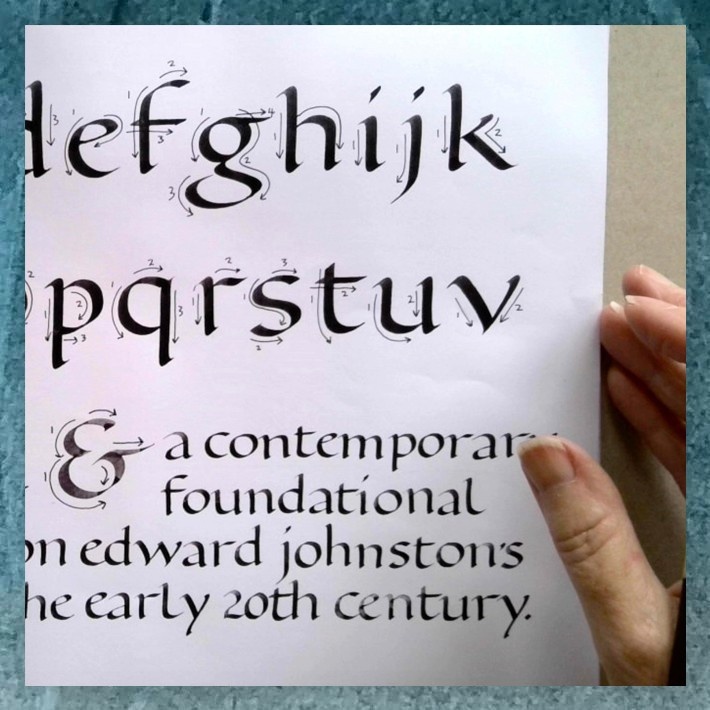 defghijk
pqrstuv
& a contemporary
foundational
on edward johnston's
the early 20th century.